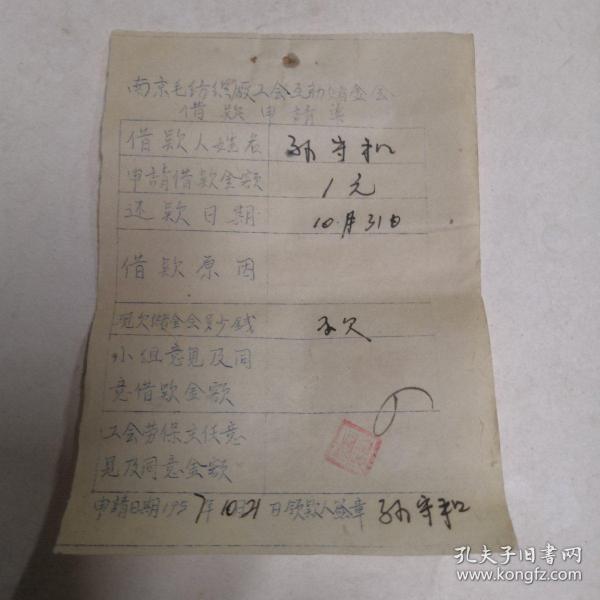 南京毛纺织厂工会互助储金会
借款申請单
借款人姓名 孙守和
申請借款金额 1元
还款日期 10月31日
借款原因
现欠储金会多少钱 不欠
小组意见及同
意借款金额
工会劳保主任意
见及同意金额
申請日期1957年10月21日领款人签章 孙守和
孔夫子旧书网
www.kongfz.com